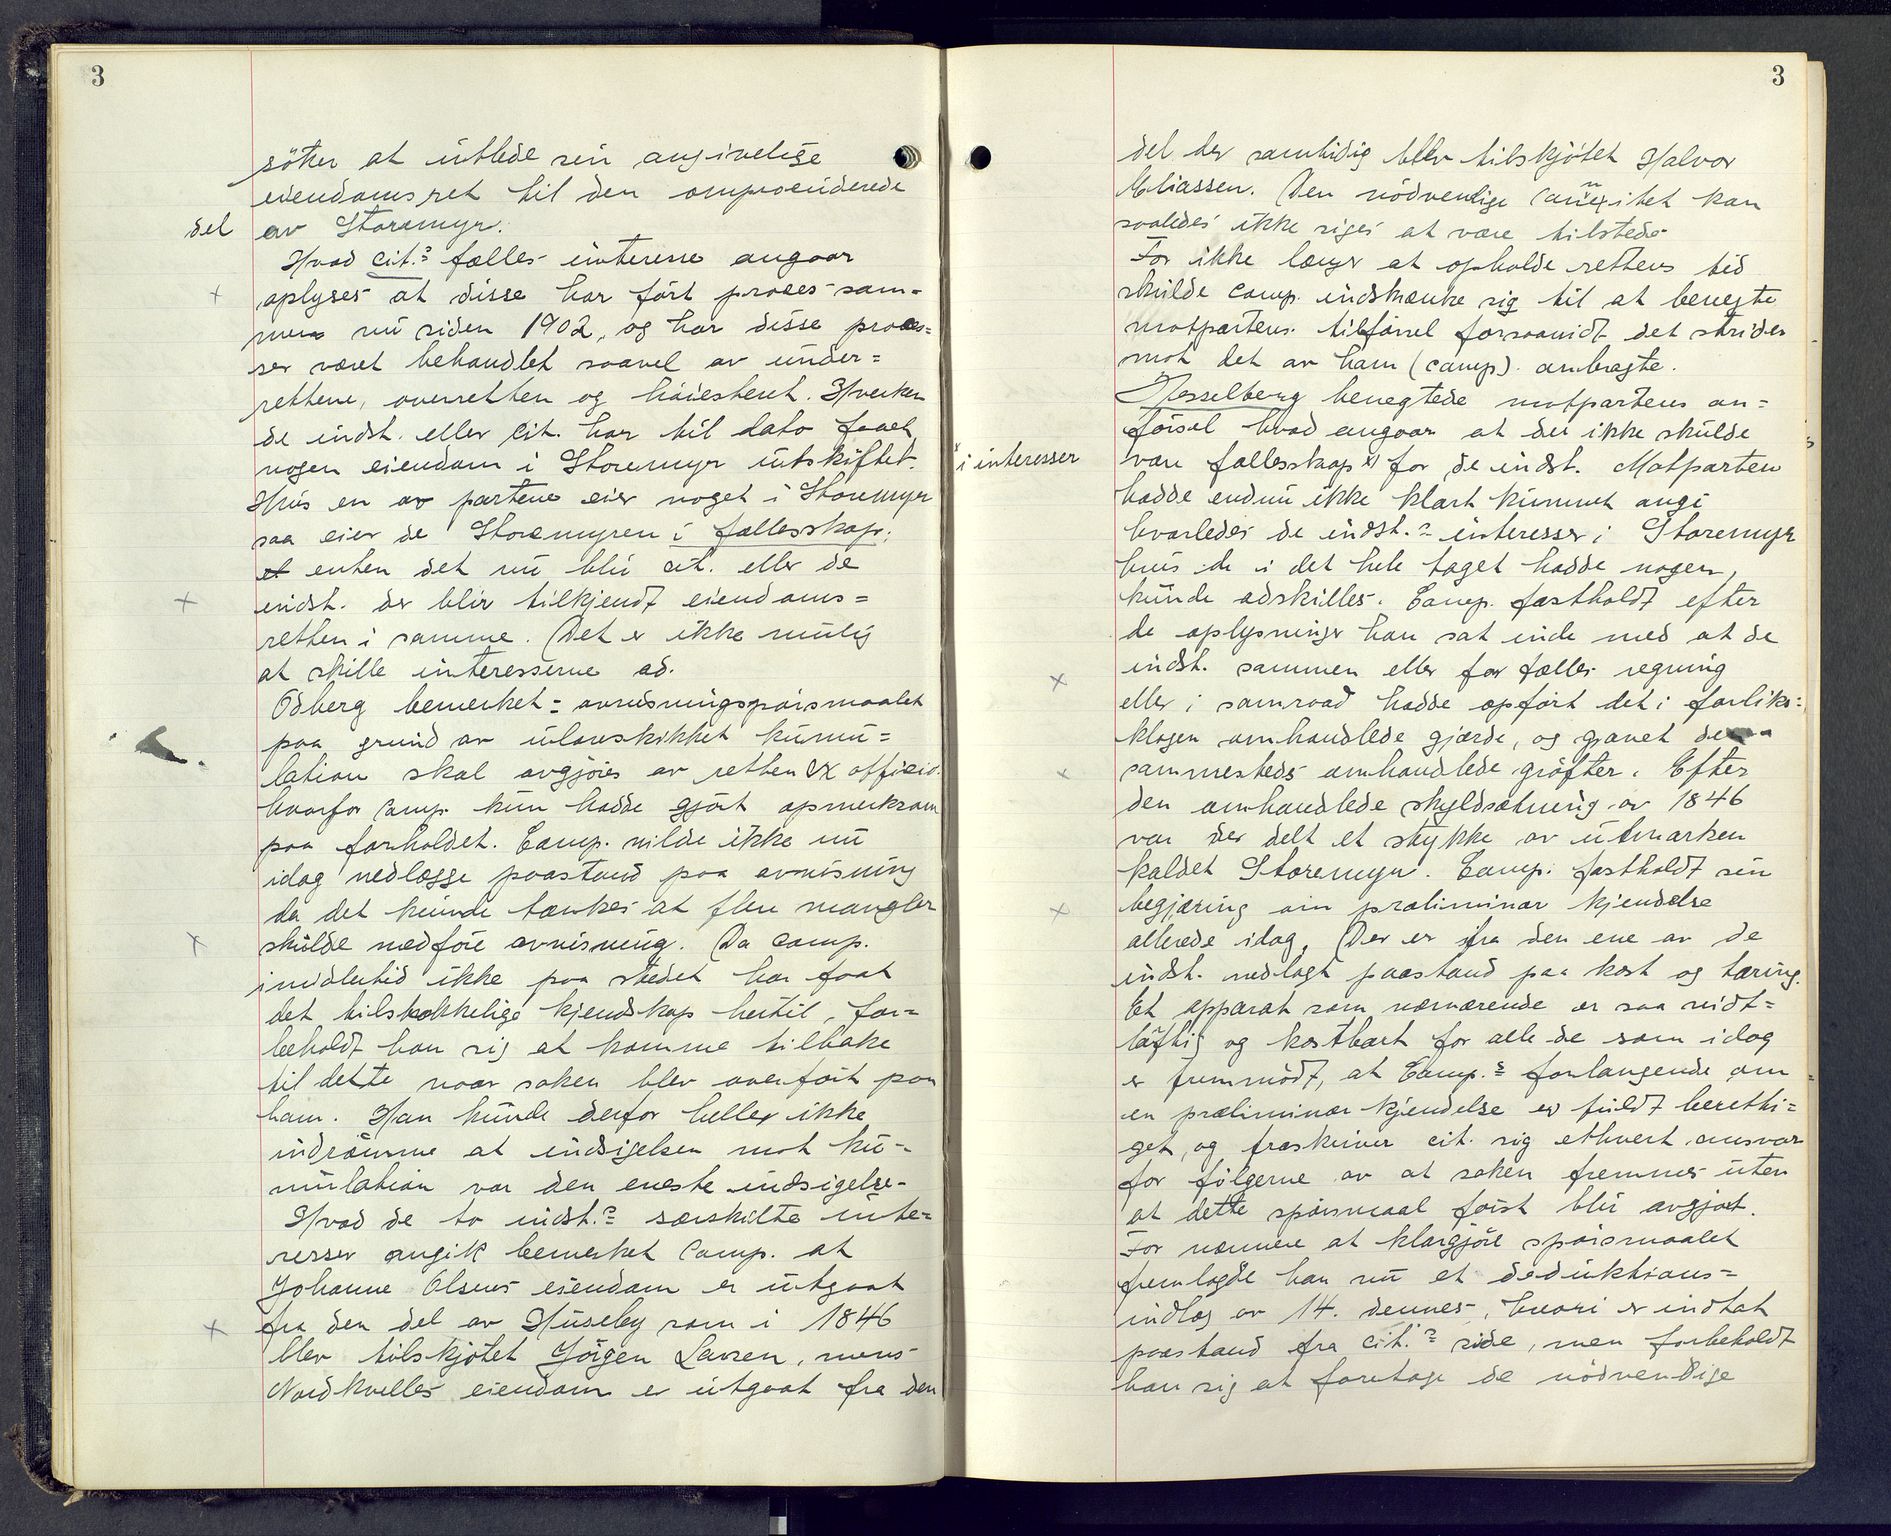 3
söker at utlede sin angivelige
eiendomsret til den omprocederede
del av Storemyr.
Hvad cit.s fælles interesse angaar
oplyses at disse har ført proces sam=
men nu siden 1902, og har disse proces=
ser været behandlet saavel av under=
rettene, overretten og høiesteret. Hverken
de indst. eller cit. har til dato faaet
nogen eiendom i Storemyr utskiftet.
Hvis en av partene eier noget i Storemyr
saa eier de Storemyren i fællesskap,
et enten det nu blir cit. eller de
indst. der blir tilkjendt eiendoms=
retten i samme. Det er ikke mulig
at skille interesserne ad.
Odberg bemerket: avvisningsspörsmaalet
paa grund av ulovskikket kumu=
lation skal avgjöres av retten ex officio
hvorfor comp. kun hadde gjört opmerksom
paa forholdet. Comp. vilde ikke nu
idag nedlægge paastand paa avvisning
da det kunde tænkes at flere mangler
skulde medföre avvisning. Da comp.
imidlertid ikke paa stedet har faat
det tilstrækkelige kjendskap hertil, for=
beholdt han sig at komme tilbake
til dette naar saken blev overfört paa
ham. Han kunde derfor heller ikke
indrömme at indsigelsen mot ku=
mulation var den eneste indsigelse.
Hvad de to indst.s særskilte inte=
resser angik bemerket comp. at
Johanne Olsens eiendom er utgaat
fra den del av Huseby som i 1846
blev tilskjötet Jörgen Larsen, mens
Nordkvelles eiendom er utgaat fra den
3
del der samtidig blev tilskjötet Halvor
Eliassen. Den nödvendige connexitet kan
saaledes ikke siges at være tilstede.
For ikke længer at opholde rettens tid
skulde comp. indskrænke sig til at benegte
motpartens tilförsel forsaavidt det strider
mot det av ham (comp). anbragte.
Hesselberg benegtede motpartens an=
försel hvad angaar at der ikke skulde
være fællesskap x) for de indst. Motparten
x i interesser
hadde endnu ikke klart kunnet angi
hvorledes de indst.s interesser i Storemyr
hvis de i det hele taget hadde nogen,
kunde adskilles. Comp. fastholdt efter
de oplysninger han sat inde med at de
indst. sammen eller for fælles regning
eller i samraad hadde opfört det i forliks=
klagen omhandlede gjærde, og gravet de
sammesteds omhandlede gröfter. Efter
den omhandlede skyldsætning av 1846
var der delt et stykke av utmarken
kaldet Storemyr. Comp. fastholdt sin
begjæring om præliminær kjendelse
allerede idag. Der er fra den ene av de
indst. nedlagt paastand paa kost og tæring.
Et apparat som nærværende er saa vidt=
löftig og kostbart for alle de som idag
er fremmödt, at Comp.s forlangende om
en præliminær kjendelse er fuldt beretti=
get, og fraskriver cit. sig ethvert ansvar
for fölgerne av at saken fremmes uten
at dette spörsmaal först blir avgjort.
For nærmere at klargjöre spörsmaalet
fremlagde han nu et deduktions=
indlæg av 14. dennes, hvori er indtat
paastand fra cit.s side, men forbeholdt
han sig at foretage de nödvendige